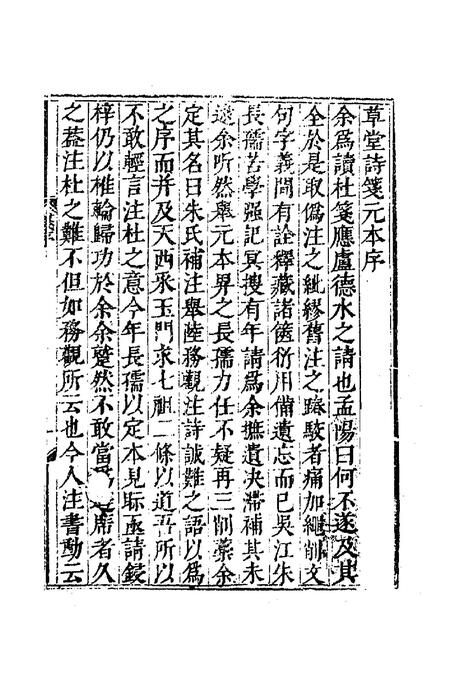 草堂詩箋元本序
余爲讀杜箋應盧德水之請也孟陽曰何不遂及其
全於是取僞注之紕繆舊注之踳駮者痛加繩削文
句字義間有詮釋藏諸篋衍用備遺忘而已吳江朱
長孺苦學强記冥搜有年請爲余摭遺決滯補其未
逮余听然舉元本畀之長孺力任不疑再三削藁余
定其名曰朱氏補注舉陸務觀注詩誠難之語以爲
之序而并及天西采玉門求七祖二條以道吾所以
不敢輕言注杜之意今年長孺以定本見眎亟請鋟
梓仍以椎輪歸功於余余蹵然不敢當 席者久
之葢注杜之難不但如務觀所云也今人注書動云